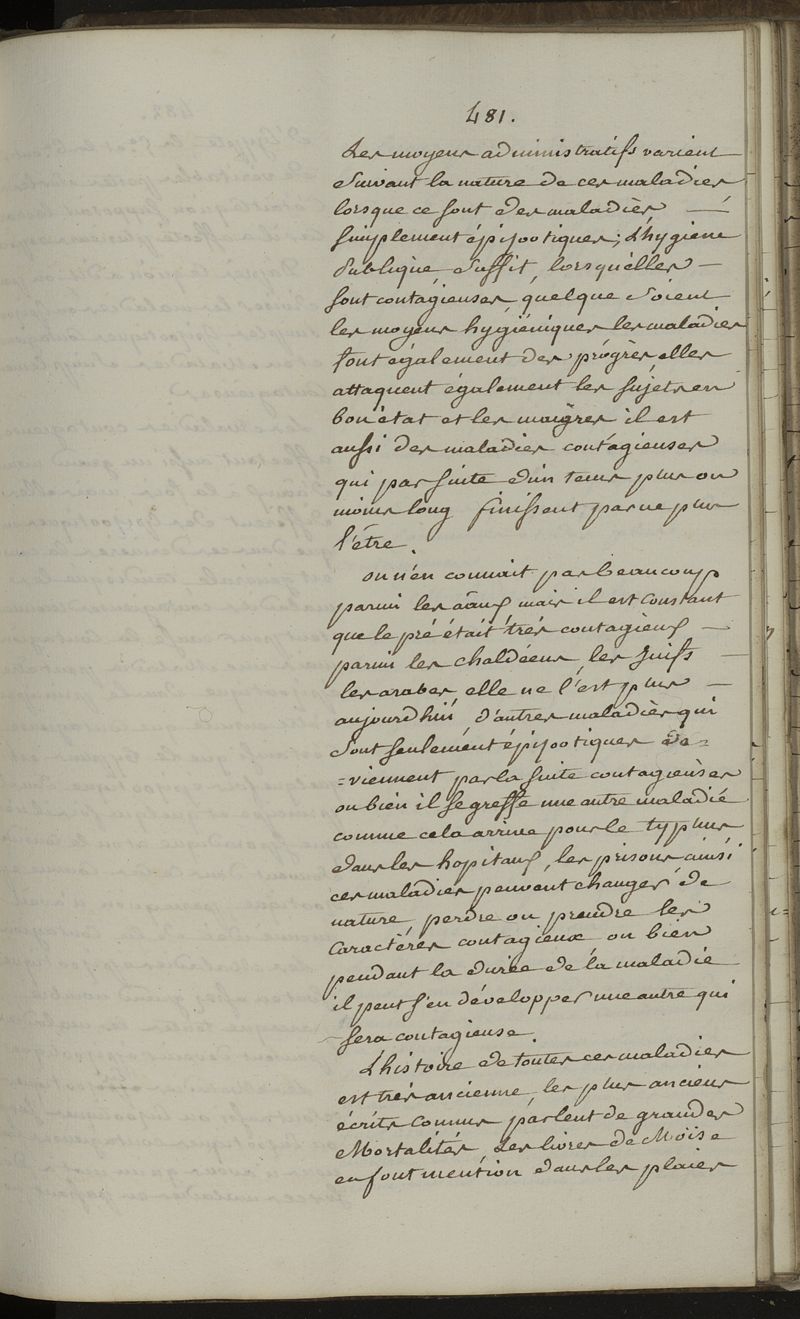 481.
Les moyens administratifs varient
Suivant la nature de ces maladies
lorsque ce sont des maladiès —
simplement épizootiques; L'hygiene
Publique Suffit, lorsquélles —
sont contagieuses, quelque Soient
les moyens hygiéniques les maladies
font également des progrès elles
attaquent également les sujets en
bon état et les maigres il est
aussi des maladies contagieuses
qui par suite d'un tems plus ou
moins long finissent par ne plus
l'être.
on n'en connait pas beaucoup
parmi les mais il est constant
que le pré était très contagieux —
parmi les chaldéens, les Juifs —
les arabes, elle ne l'est plus —
aujourdhui d'autres maladiès qui
Sont seulement épizootiques de=
=viennent par la suite contagieuses
ou bien il se greffe une autre maladie
comme cela arrive pour le typhus
dans les hopitaux, les prisons ainsi
ces maladies peuvent changer de
nature perdre ou prendre les
Caractéres contagieux ou bien
pendant la durée de la maladie
il peut s'en développer une autre qui
sera contagieuse.
L'histoire de toutes ces maladies
est très ancienne, les plus anciens
écrits connus parlent de grandes
Mortalités, Les livres de Moïse
en font mention dans les plaies